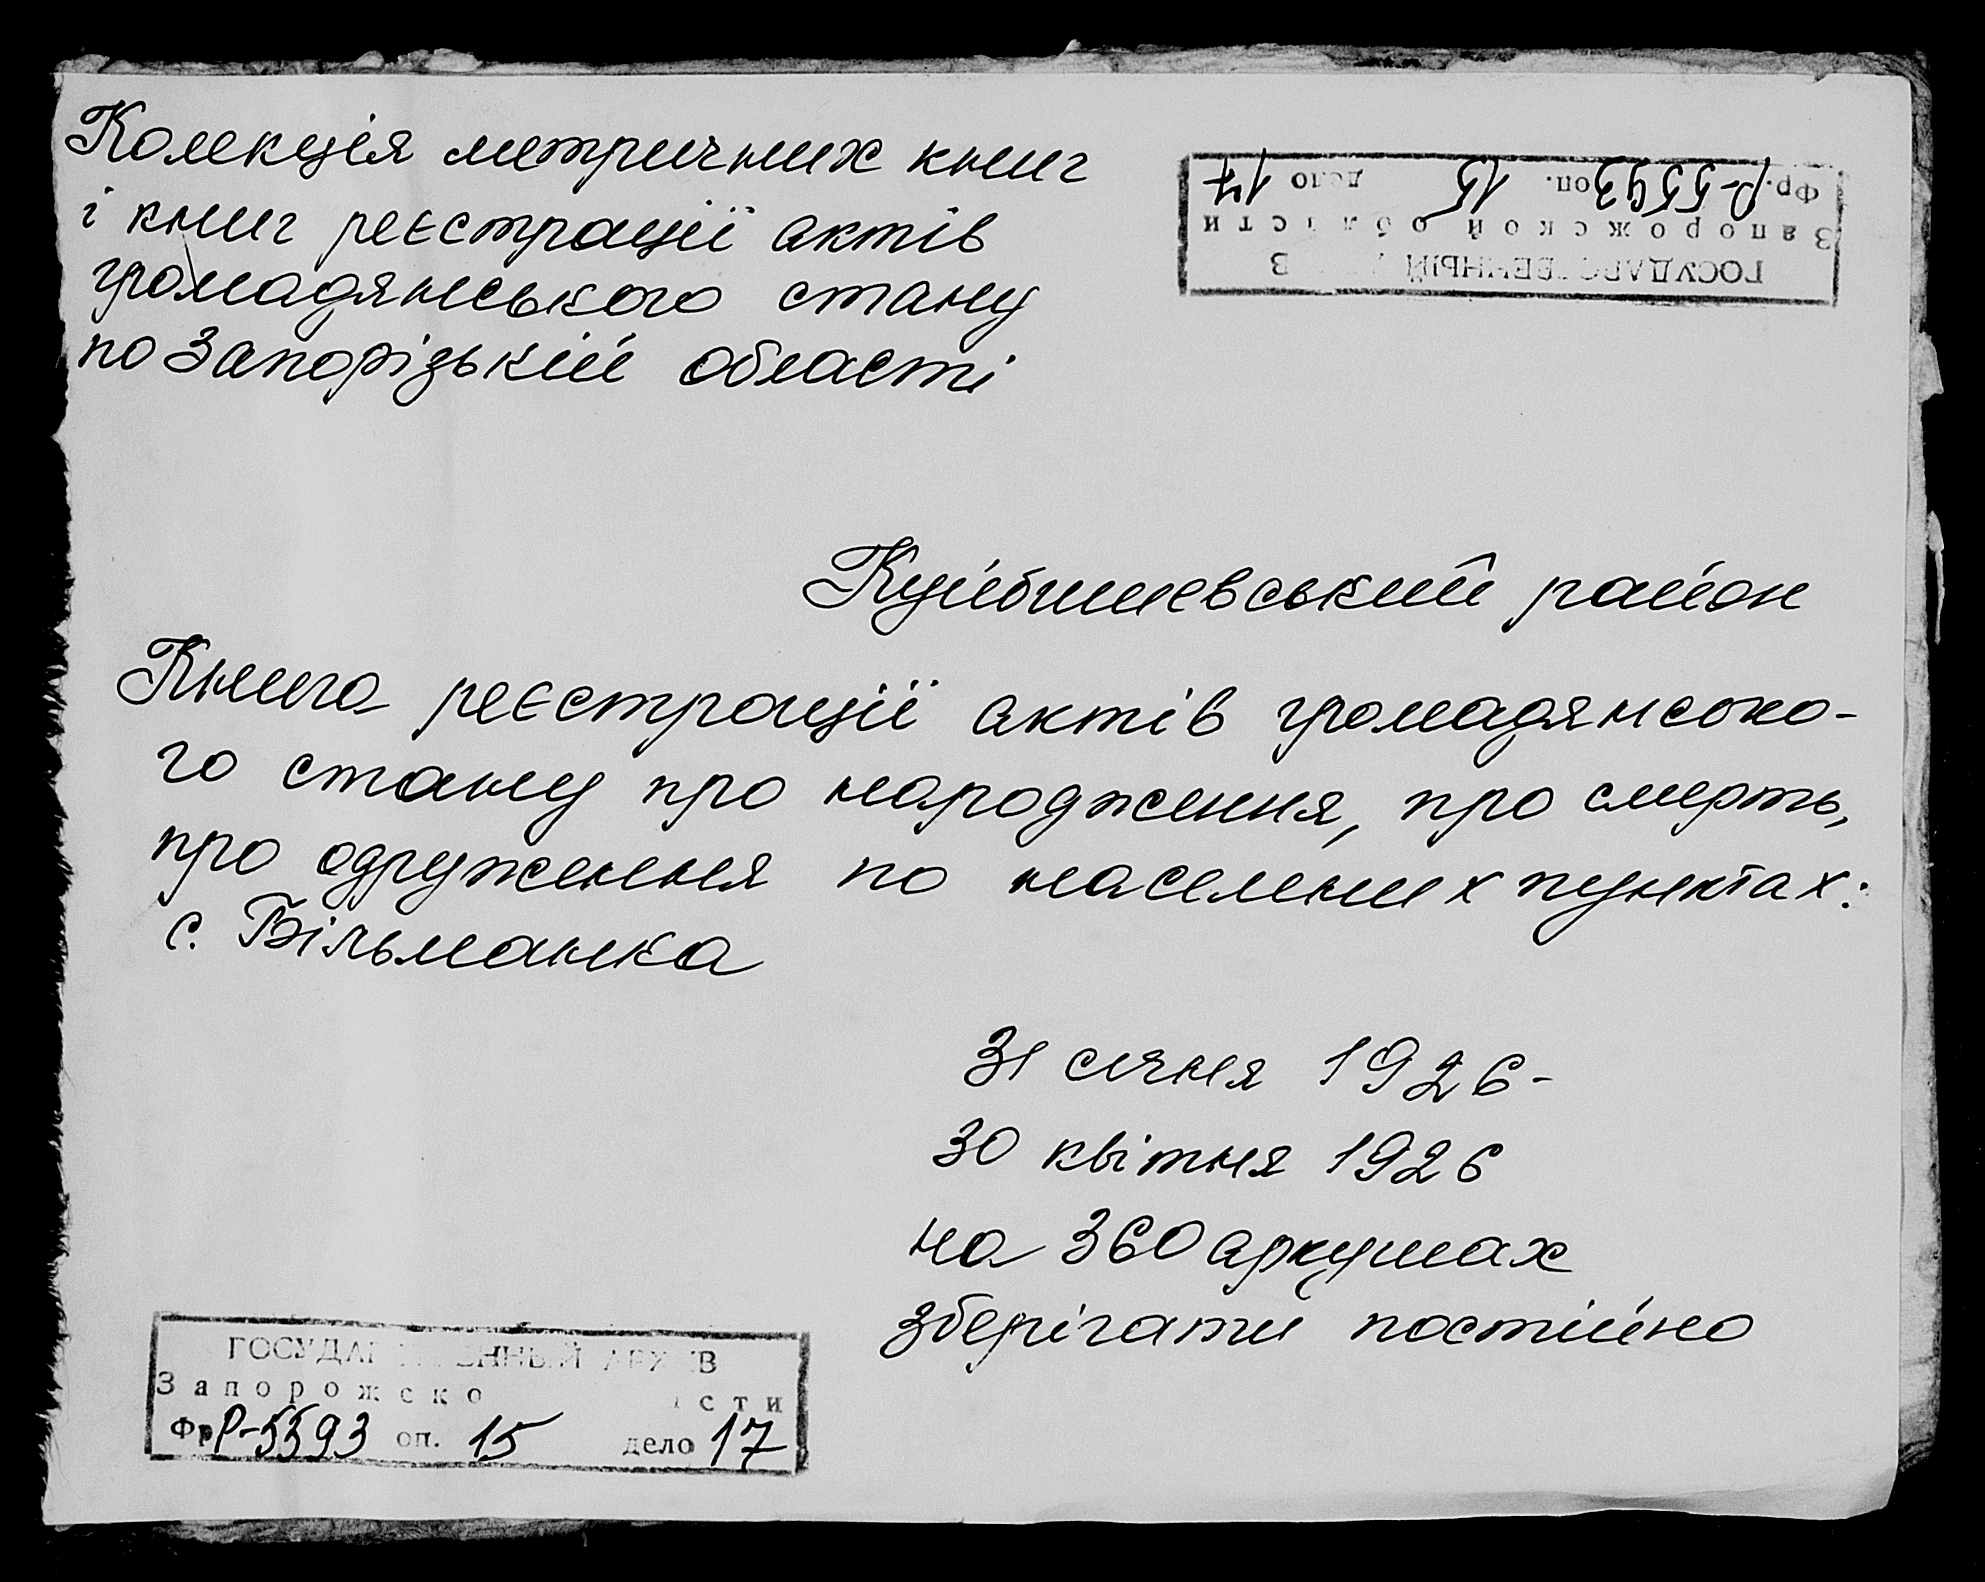 Колекція метричних книг
і книг реєстрації актів
громадянського стану
по Запорізькій області
ГОСУДАРСТВЕННЫЙ АРХИВ
Запорожской области
Фр. Р-5593 оп. 15 дело 17
Куйбишевський район
Книга реєстрації актів громадянсько-
го стану про народження, про смерть,
про одруження по населених пунктах:
с. Більманка
31 січня 1926-
30 квітня 1926
на 360 аркушах
зберігати постійно
ГОСУДАРСТВЕННЫЙ АРХИВ
Запорожской области
Фр Р-5593 оп. 15 дело 17